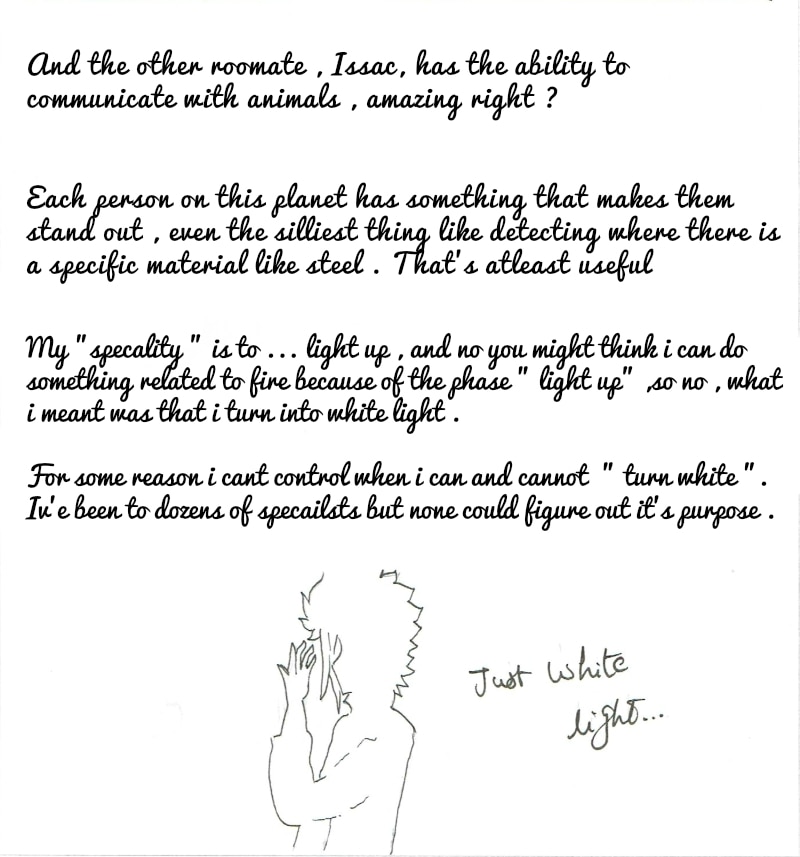 And the other roomate , Issac, has the ability to
communicate with animals , amazing right ?
Each person on this planet has something that makes them
stand out , even the silliest thing like detecting where there is
a specific material like steel . That's atleast useful
My " specality " is to ... light up , and no you might think i can do
something related to fire because of the phase " light up" ,so no , what
i meant was that i turn into white light .
For some reason i cant control when i can and cannot " turn white " .
Iv'e been to dozens of specailsts but none could figure out it's purpose .
Just White
light...